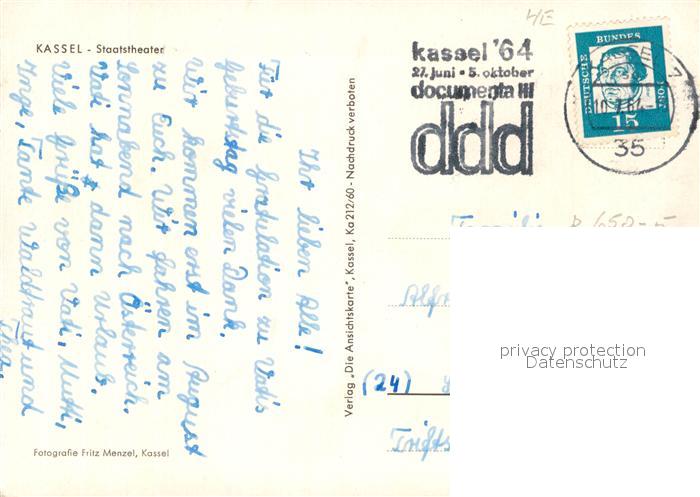 KASSEL - Staatstheater
Ihr lieben Alle!
Für die Gratulation zu Vati's
Geburtstag vielen Dank.
Wir kommen erst im August
zu Euch. Wir fahren am
Sonnabend nach Österreich.
Vati hat dann Urlaub.
Viele Grüße von Vati, Mutti,
Inge, Tante Waldtraut und
Thea.
Fotografie Fritz Menzel, Kassel
Verlag „Die Ansichtskarte", Kassel, Ka 212/60 - Nachdruck verboten
kassel '64
27. juni • 5. oktober
documenta III
ddd
DEUTSCHE BUNDESPOST
15
35
Familie
(24)
privacy protection
Datenschutz